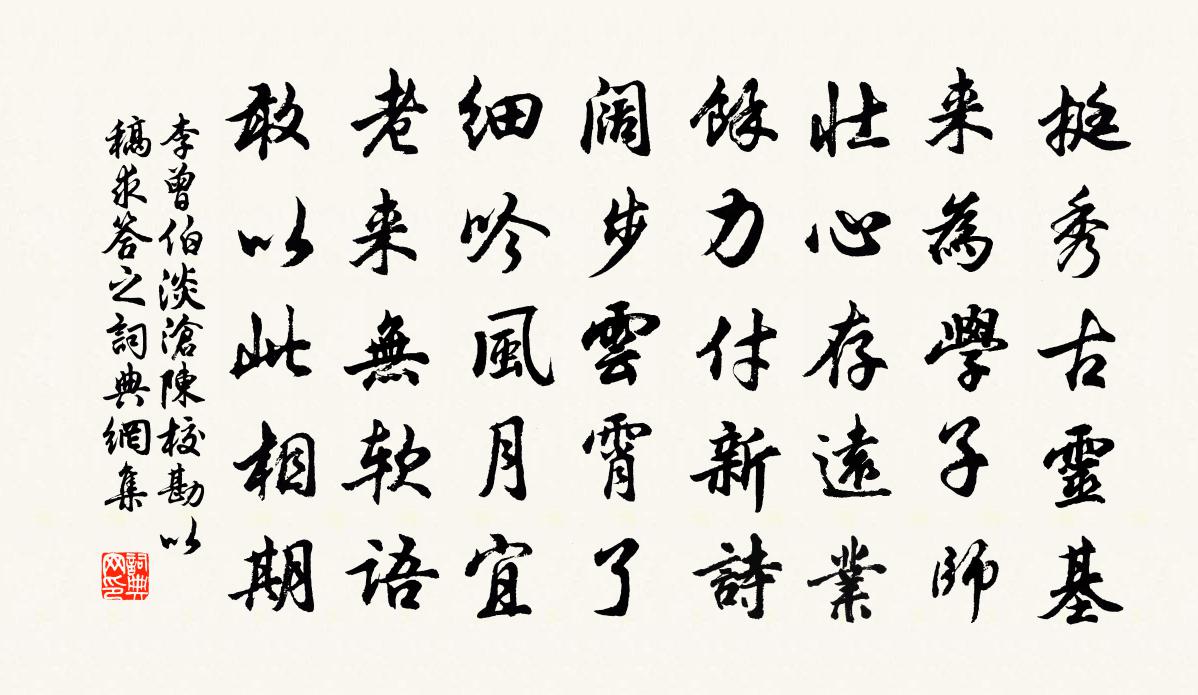 挺秀古靈基
来為學子師
壯心存遠業
餘力付新詩
阔步雲霄了
细吟風月宜
老来無软语
敢以此相期
李曾伯淡滄陳校勘以
稿求答之詞典網集
詞典网印